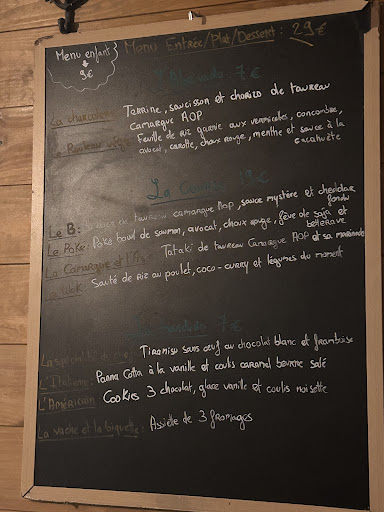 Menu enfant
9€
Menu Entrée/Plat/Dessert : 29€
7 €
La charcut
Terrine, saucisson et chorizo de taureau
Camargue AOP
Le Rouleau
Feuille de riz garnie aux vermicelles, concombre,
avocat, carotte, choux rouge, menthe et sauce à la
cacahuète
Le B : de taureau camargue AOP, sauce mystère et cheddar
fondu
La Poke : Poke bowl de saumon, avocat, choux rouge, fève de soja et
betterave
La Camargue et l'As : Tataki de taureau Camargue AOP et sa marinade
Le Wok : Sauté de riz au poulet, coco-curry et légumes du moment
7 €
La spécialité du : Tiramisu sans oeuf au chocolat blanc et framboise
L'Italienne : Panna Cotta à la vanille et coulis caramel beurre salé
L'Américain : Cookies 3 chocolat, glace vanille et coulis noisette
La vache et la biquette : Assiette de 3 fromages